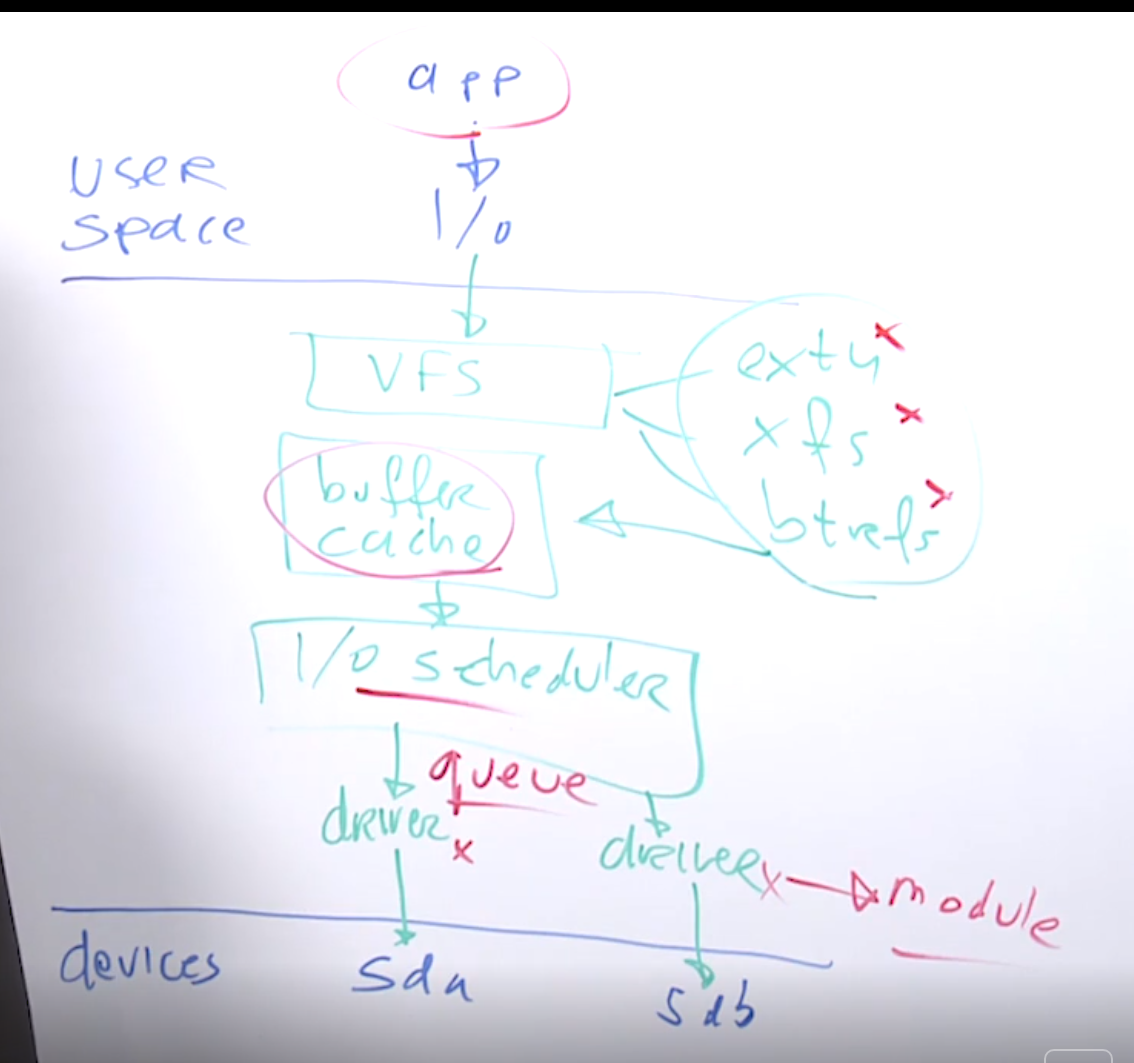 app
USER
space
I/o
VFS
ext4
xfs
btrfs
buffer
cache
I/o scheduler
queue
driver
driver
module
devices
sda
sdb